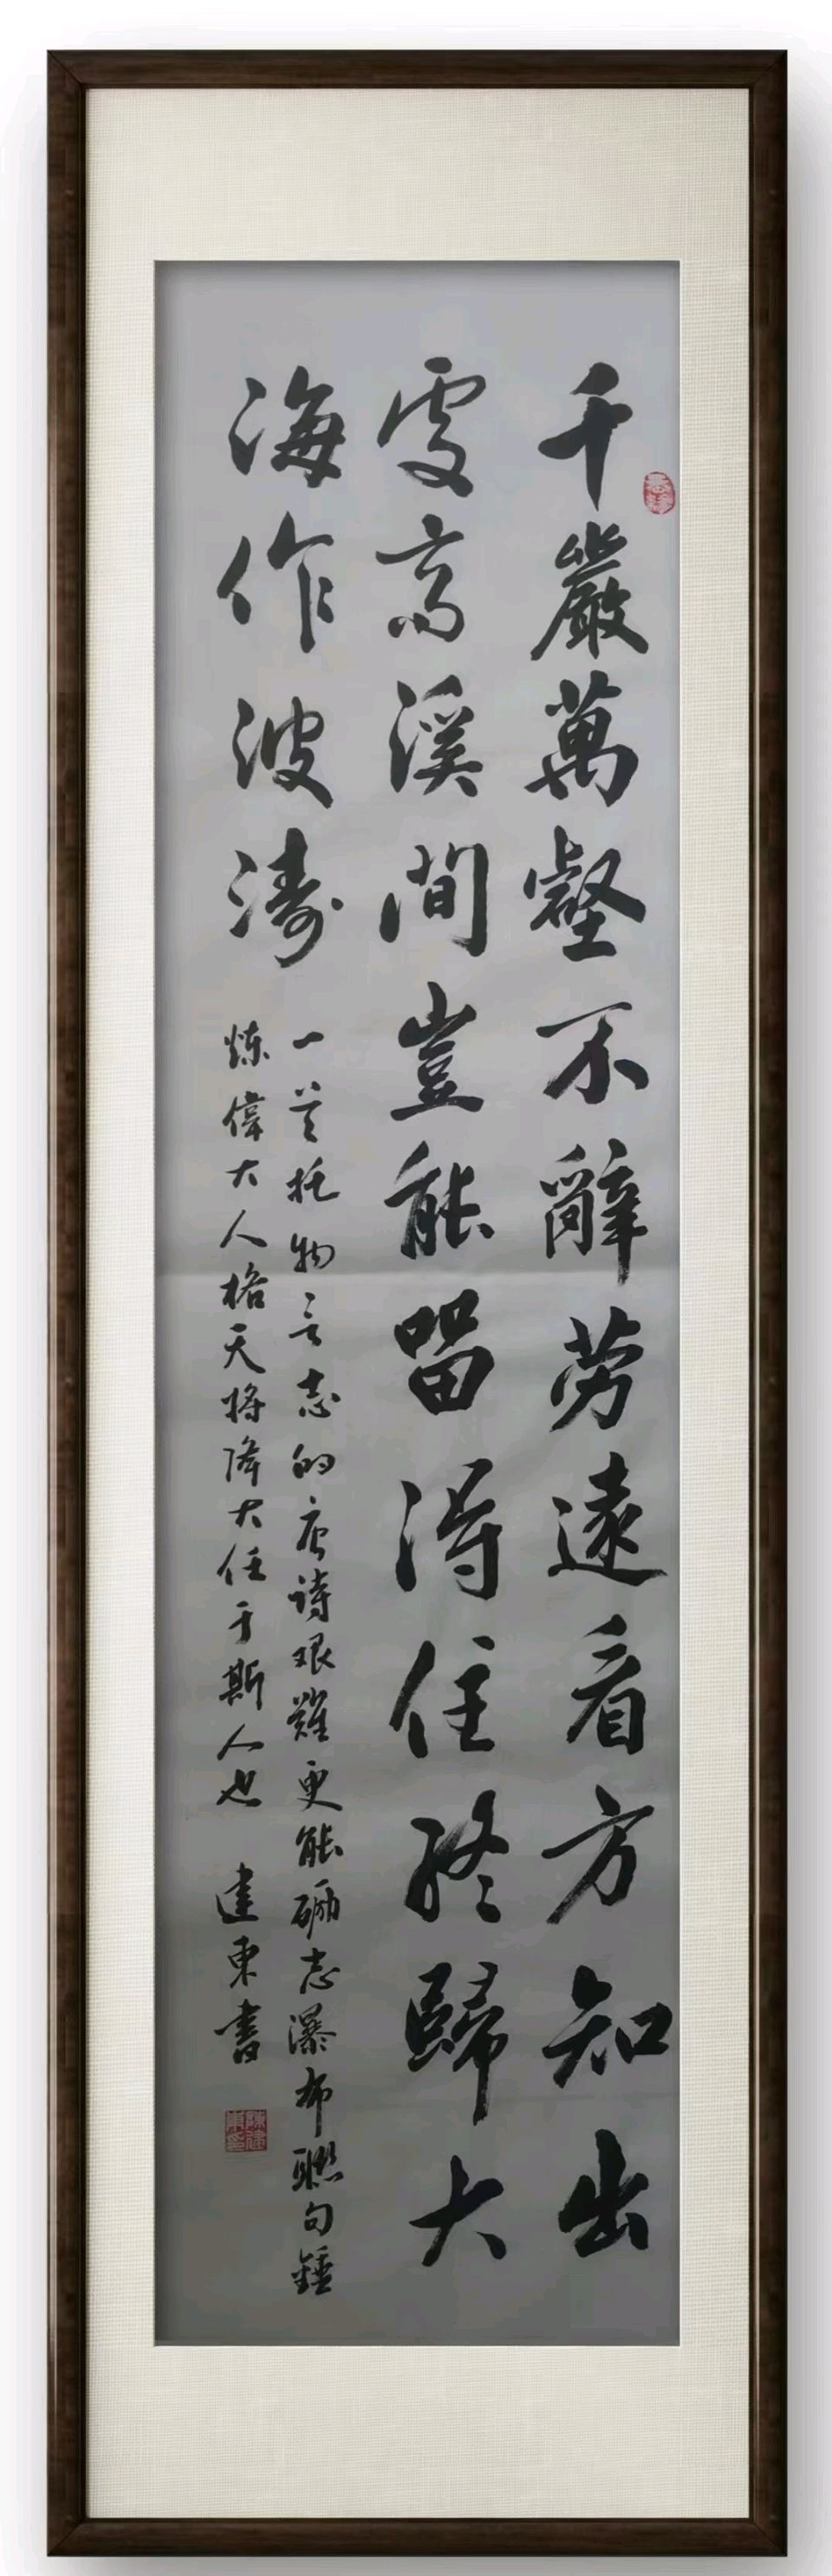 千巖萬壑不辭勞遠看方知出
處高溪澗豈能留得住終歸大
海作波濤
一首托物言志的唐诗艰難更能砺志瀑布聯句錘
炼偉大人格天将降大任于斯人也 建東書